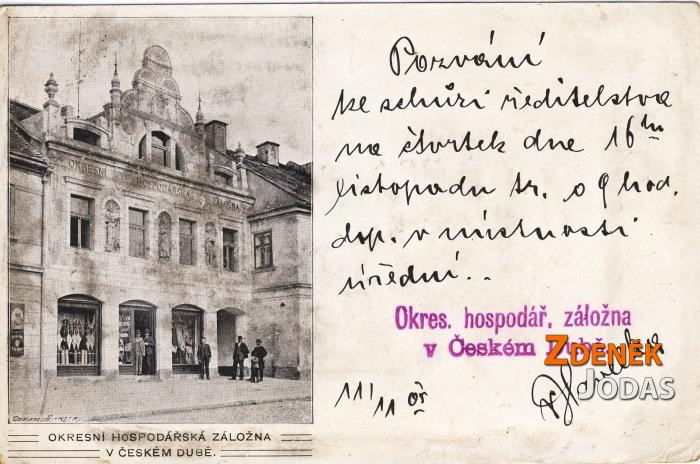 OKRESNÍ HOSPODÁŘSKÁ ZÁLOŽNA
OKRESNÍ HOSPODÁŘSKÁ ZÁLOŽNA
V ČESKÉM DUBĚ.
Pozvání
ke schůzi ředitelstva
na čtvrtek dne 16ho
listopadu tr. o 9 hod.
dop. v místnosti
úřední..
Okres. hospodář. záložna
v Českém Dubě
ZDENĚK
JODAS
11/11